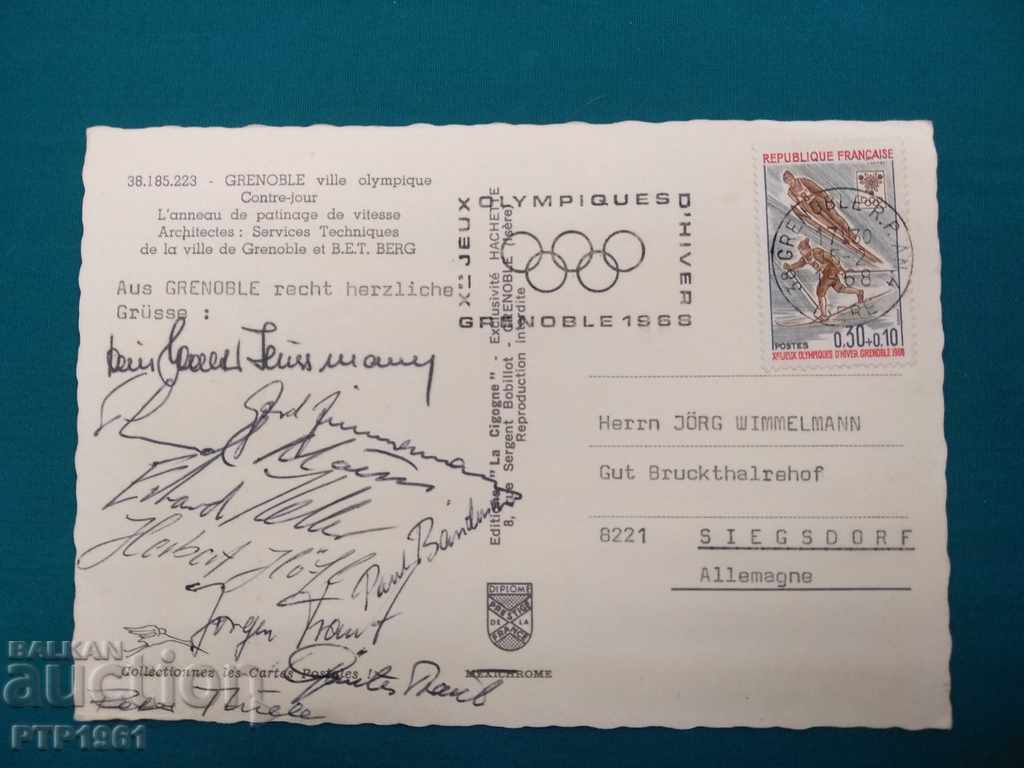 38.185.223 - GRENOBLE ville olympique
Contre-jour
L'anneau de patinage de vitesse
Architectes : Services Techniques
de la ville de Grenoble et B.E.T. BERG
Aus GRENOBLE recht herzliche
Grüsse :
Gerd Zimmermann
Erhard Keller
Herbert Höfl
Paul Bändmann
Jorgen Traut
Günter Traub
Collectionnez les Cartes Postales
Editions "La Cigogne" - Exclusivité HACHETTE
8, rue Sergent Bobillot - GRENOBLE (Isère)
Reproduction Interdite
DIPLOME
PRESTIGE
DE LA
FRANCE
MEXICHROME
Xes JEUX OLYMPIQUES D'HIVER
GRENOBLE 1968
REPUBLIQUE FRANÇAISE
POSTES 0,30+0,10
XES JEUX OLYMPIQUES D'HIVER GRENOBLE 1968
38 GRENOBLE R.P. ANN.
68
ISERE
Herrn JÖRG WIMMELMANN
Gut Bruckthalrehof
8221 SIEGSDORF
Allemagne
BALKAN
auction
PTP1961